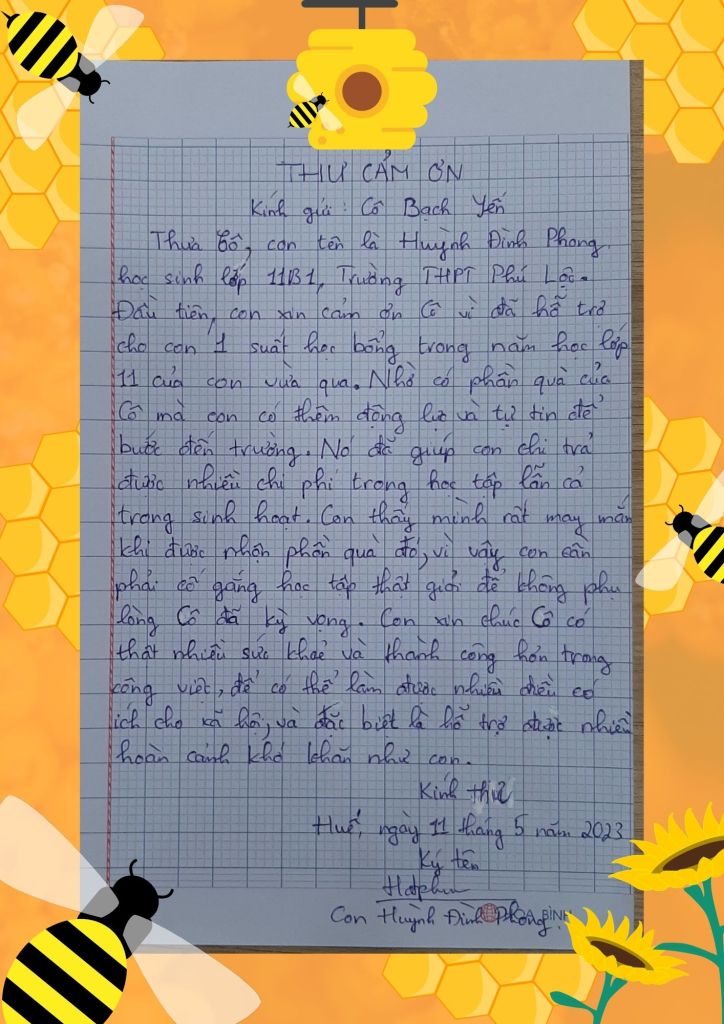 THƯ CẢM ƠN
Kính gửi: Cô Bạch Yến
Thưa Cô, con tên là Huỳnh Đình Phong,
học sinh lớp 11B1, Trường THPT Phú Lộc.
Đầu tiên, con xin cảm ơn Cô vì đã hỗ trợ
cho con 1 suất học bổng trong năm học lớp
11 của con vừa qua. Nhờ có phần quà của
Cô mà con có thêm động lực và tự tin để
bước đến trường. Nó đã giúp con chi trả
được nhiều chi phí trong học tập lẫn cả
trong sinh hoạt. Con thấy mình rất may mắn
khi được nhận phần quà đó, vì vậy con cần
phải cố gắng học tập thật giỏi để không phụ
lòng Cô đã kỳ vọng. Con xin chúc Cô có
thật nhiều sức khoẻ và thành công hơn trong
công việc, để có thể làm được nhiều điều có
ích cho xã hội, và đặc biệt là hỗ trợ được nhiều
hoàn cảnh khó khăn như con.
Kính thư
Huế, ngày 11 tháng 5 năm 2023
Ký tên
Con Huỳnh Đình Phong.
BÌNH